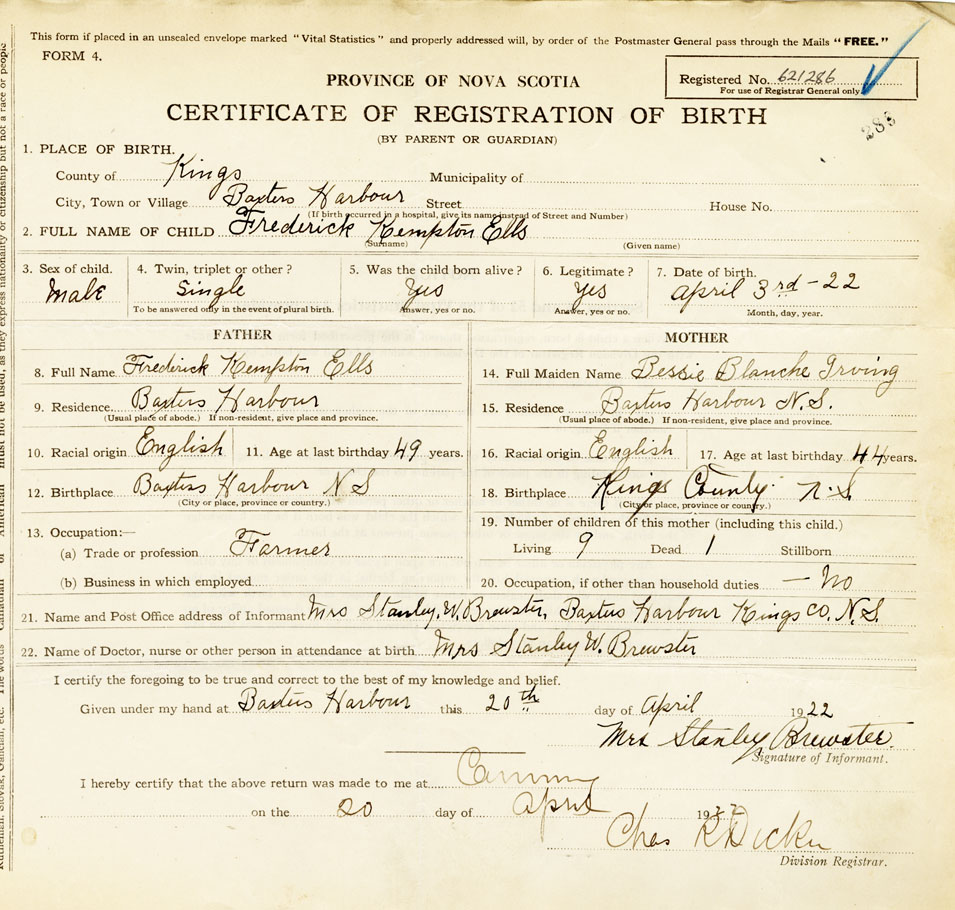 This form if placed in an unsealed envelope marked "Vital Statistics" and properly addressed will, by order of the Postmaster General pass through the Mails "FREE."
FORM 4.
PROVINCE OF NOVA SCOTIA
Registered No. 621286
For use of Registrar General only
CERTIFICATE OF REGISTRATION OF BIRTH
288
(BY PARENT OR GUARDIAN)
1. PLACE OF BIRTH.
County of Kings Municipality of
City, Town or Village Baxters Harbour Street House No.
(If birth occurred in a hospital, give its name instead of Street and Number)
2. FULL NAME OF CHILD Frederick Kempton Ells
(Surname) (Given name)
3. Sex of child. 4. Twin, triplet or other? 5. Was the child born alive? 6. Legitimate? 7. Date of birth.
Male Single Yes Yes April 3rd - 22
To be answered only in the event of plural birth. Answer, yes or no. Answer, yes or no. Month, day, year.
FATHER MOTHER
8. Full Name Frederick Kempton Ells 14. Full Maiden Name Bessie Blanche Irving
9. Residence Baxters Harbour 15. Residence Baxters Harbour N.S.
(Usual place of abode.) If non-resident, give place and province. (Usual place of abode.) If non-resident, give place and province.
10. Racial origin English 11. Age at last birthday 49 years. 16. Racial origin English 17. Age at last birthday 44 years.
12. Birthplace Baxters Harbour N S 18. Birthplace Kings County N.S
(City or place, province or country.) (City or place, province or country.)
13. Occupation:— 19. Number of children of this mother (including this child.)
(a) Trade or profession Farmer Living 9 Dead 1 Stillborn
(b) Business in which employed 20. Occupation, if other than household duties — No
21. Name and Post Office address of Informant Mrs Stanley. W. Brewster, Baxters Harbour Kings CO. N.S.
22. Name of Doctor, nurse or other person in attendance at birth Mrs Stanley W. Brewster
I certify the foregoing to be true and correct to the best of my knowledge and belief.
Given under my hand at Baxters Harbour this 20th day of April 1922
Mrs Stanley Brewster.
Signature of Informant.
I hereby certify that the above return was made to me at
on the 20 day of April 1922
Chas R
Division Registrar.